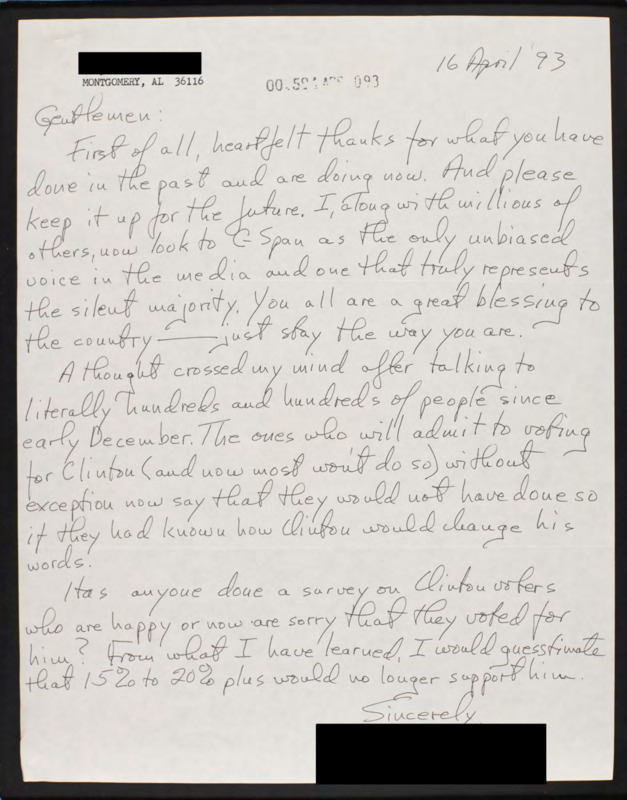 MONTGOMERY, AL 36116
16 April '93
Gentlemen:
First of all, heartfelt thanks for what you have
done in the past and are doing now. And please
keep it up for the future. I, along with millions of
others, now look to C-Span as the only unbiased
voice in the media and one that truly represents
the silent majority. You all are a great blessing to
the country — just stay the way you are.
A thought crossed my mind after talking to
literally hundreds and hundreds of people since
early December. The ones who will admit to voting
for Clinton (and now most won't do so) without
exception now say that they would not have done so
if they had known how Clinton would change his
words.
Has anyone done a survey on Clinton voters
who are happy or now are sorry that they voted for
him? From what I have learned, I would guesstimate
that 15% to 20% plus would no longer support him.
Sincerely,